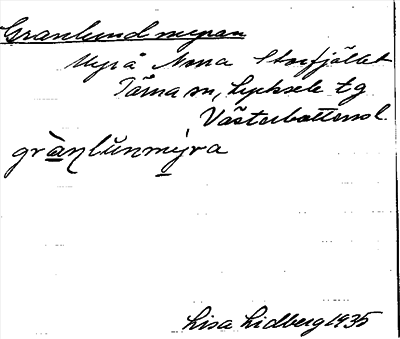 Granlundmyran
Myr å Norra Storfjället
Tärna sn, Lycksele tg
Västerbottens l.
grànlŭnmýra
Lisa Lidberg 1935